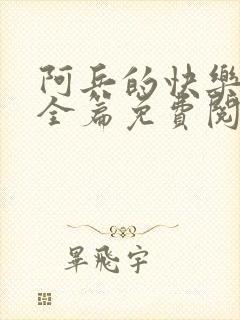 阿兵的快樂
全篇免費閱
畢飛宇